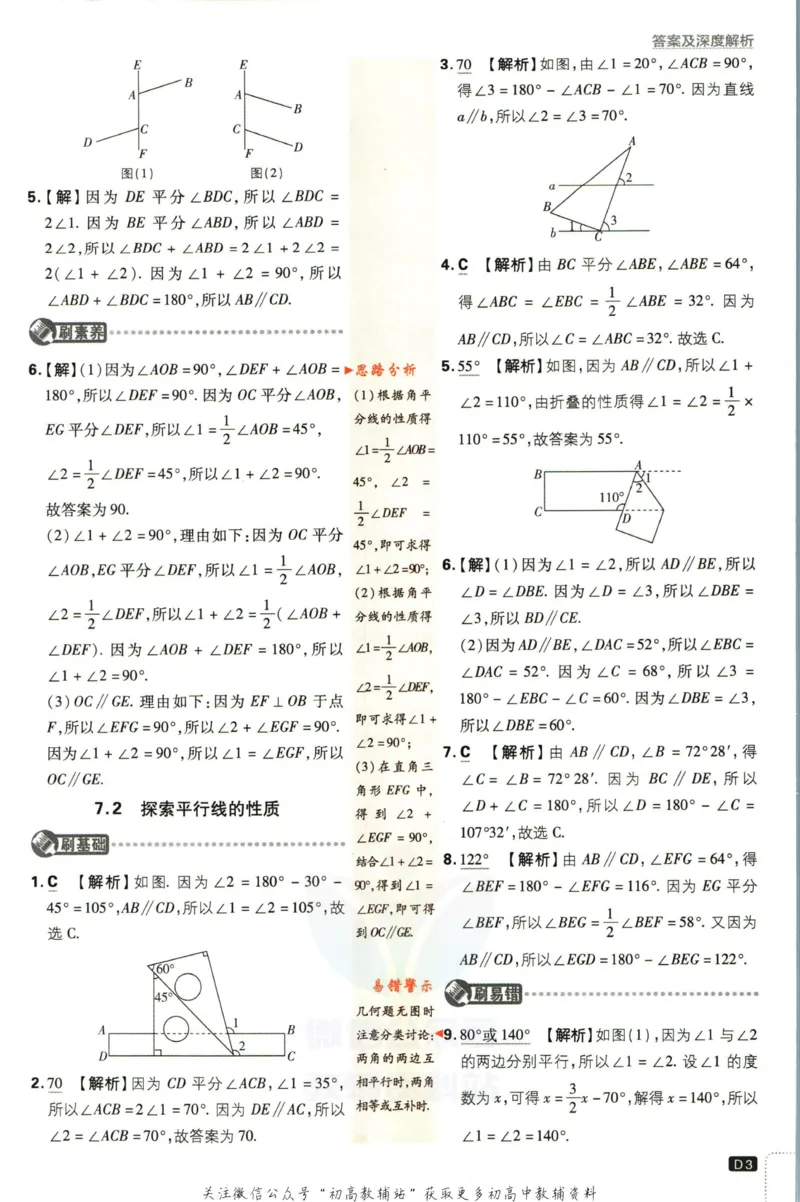 答案及深度解析
E
B
A
C
D
F
图(1)
E
A
B
C
D
F
图(2)
5.【解】因为 DE 平分 ∠BDC,所以 ∠BDC =
2∠1. 因为 BE 平分 ∠ABD,所以 ∠ABD =
2∠2,所以 ∠BDC + ∠ABD = 2∠1 + 2∠2 =
2(∠1 + ∠2). 因为 ∠1 + ∠2 = 90°,所以
∠ABD + ∠BDC = 180°,所以 AB∥CD.
刷素养
6.【解】(1)因为∠AOB = 90°,∠DEF + ∠AOB =
180°,所以∠DEF = 90°. 因为 OC 平分∠AOB,
EG 平分∠DEF,所以∠1 = 1/2∠AOB = 45°,
∠2 = 1/2∠DEF = 45°,所以∠1 + ∠2 = 90°.
故答案为 90.
(2)∠1 + ∠2 = 90°,理由如下:因为 OC 平分
∠AOB,EG 平分∠DEF,所以∠1 = 1/2∠AOB,
∠2 = 1/2∠DEF,所以∠1 + ∠2 = 1/2(∠AOB +
∠DEF). 因为 ∠AOB + ∠DEF = 180°,所以
∠1 + ∠2 = 90°.
(3)OC∥GE. 理由如下:因为 EF⊥OB 于点
F,所以∠EFG = 90°,所以∠2 + ∠EGF = 90°.
因为∠1 + ∠2 = 90°,所以∠1 = ∠EGF,所以
OC∥GE.
7.2 探索平行线的性质
刷基础
1.C 【解析】如图. 因为 ∠2 = 180° - 30° -
45° = 105°,AB∥CD,所以∠1 = ∠2 = 105°,故
选 C.
60°
45°
A
1
B
2
D
C
2.70 【解析】因为 CD 平分∠ACB,∠1 = 35°,
所以∠ACB = 2∠1 = 70°. 因为 DE∥AC,所以
∠2 = ∠ACB = 70°,故答案为 70.
思路分析
(1)根据角平
分线的性质得
∠1=1/2∠AOB=
45°, ∠2 =
1/2∠DEF =
45°,即可求得
∠1+∠2=90°;
(2)根据角平
分线的性质得
∠1=1/2∠AOB,
∠2=1/2∠DEF,
即可求得∠1+
∠2=90°;
(3)在直角三
角形 EFG 中,
得到 ∠2 +
∠EGF = 90°,
结合∠1+∠2=
90°,得到∠1 =
∠EGF,即可得
到OC∥GE.
易错警示
几何题无图时
注意分类讨论:
两角的两边互
相平行时,两角
相等或互补时.
3.70 【解析】如图,由∠1 = 20°,∠ACB = 90°,
得∠3 = 180° - ∠ACB - ∠1 = 70°. 因为直线
a∥b,所以∠2 = ∠3 = 70°.
A
a
2
B
1
3
b
C
4.C 【解析】由 BC 平分∠ABE,∠ABE = 64°,
得∠ABC = ∠EBC = 1/2∠ABE = 32°. 因为
AB∥CD,所以∠C = ∠ABC = 32°. 故选 C.
5.55° 【解析】如图,因为 AB∥CD,所以∠1 +
∠2 = 110°,由折叠的性质得∠1 = ∠2 = 1/2 ×
110° = 55°,故答案为 55°.
A
B
1
2
110°
C
D
6.【解】(1)因为∠1 = ∠2,所以 AD∥BE,所以
∠D = ∠DBE. 因为∠D = ∠3,所以∠DBE =
∠3,所以 BD∥CE.
(2)因为AD∥BE,∠DAC = 52°,所以∠EBC =
∠DAC = 52°. 因为 ∠C = 68°,所以 ∠3 =
180° - ∠EBC - ∠C = 60°. 因为∠DBE = ∠3,
所以∠DBE = 60°.
7.C 【解析】由 AB∥CD,∠B = 72°28′,得
∠C = ∠B = 72°28′. 因为 BC∥DE,所以
∠D + ∠C = 180°,所以∠D = 180° - ∠C =
107°32′,故选 C.
8.122° 【解析】由 AB∥CD,∠EFG = 64°,得
∠BEF = 180° - ∠EFG = 116°. 因为 EG 平分
∠BEF,所以∠BEG = 1/2∠BEF = 58°. 又因为
AB∥CD,所以∠EGD = 180° - ∠BEG = 122°.
刷易错
9.80°或140° 【解析】如图(1),因为∠1与∠2
的两边分别平行,所以∠1 = ∠2. 设∠1 的度
数为 x,可得 x = 3/2x - 70°,解得 x = 140°,所以
∠1 = ∠2 = 140°.
D3
关注微信公众号“初高教辅站”获取更多初高中教辅资料